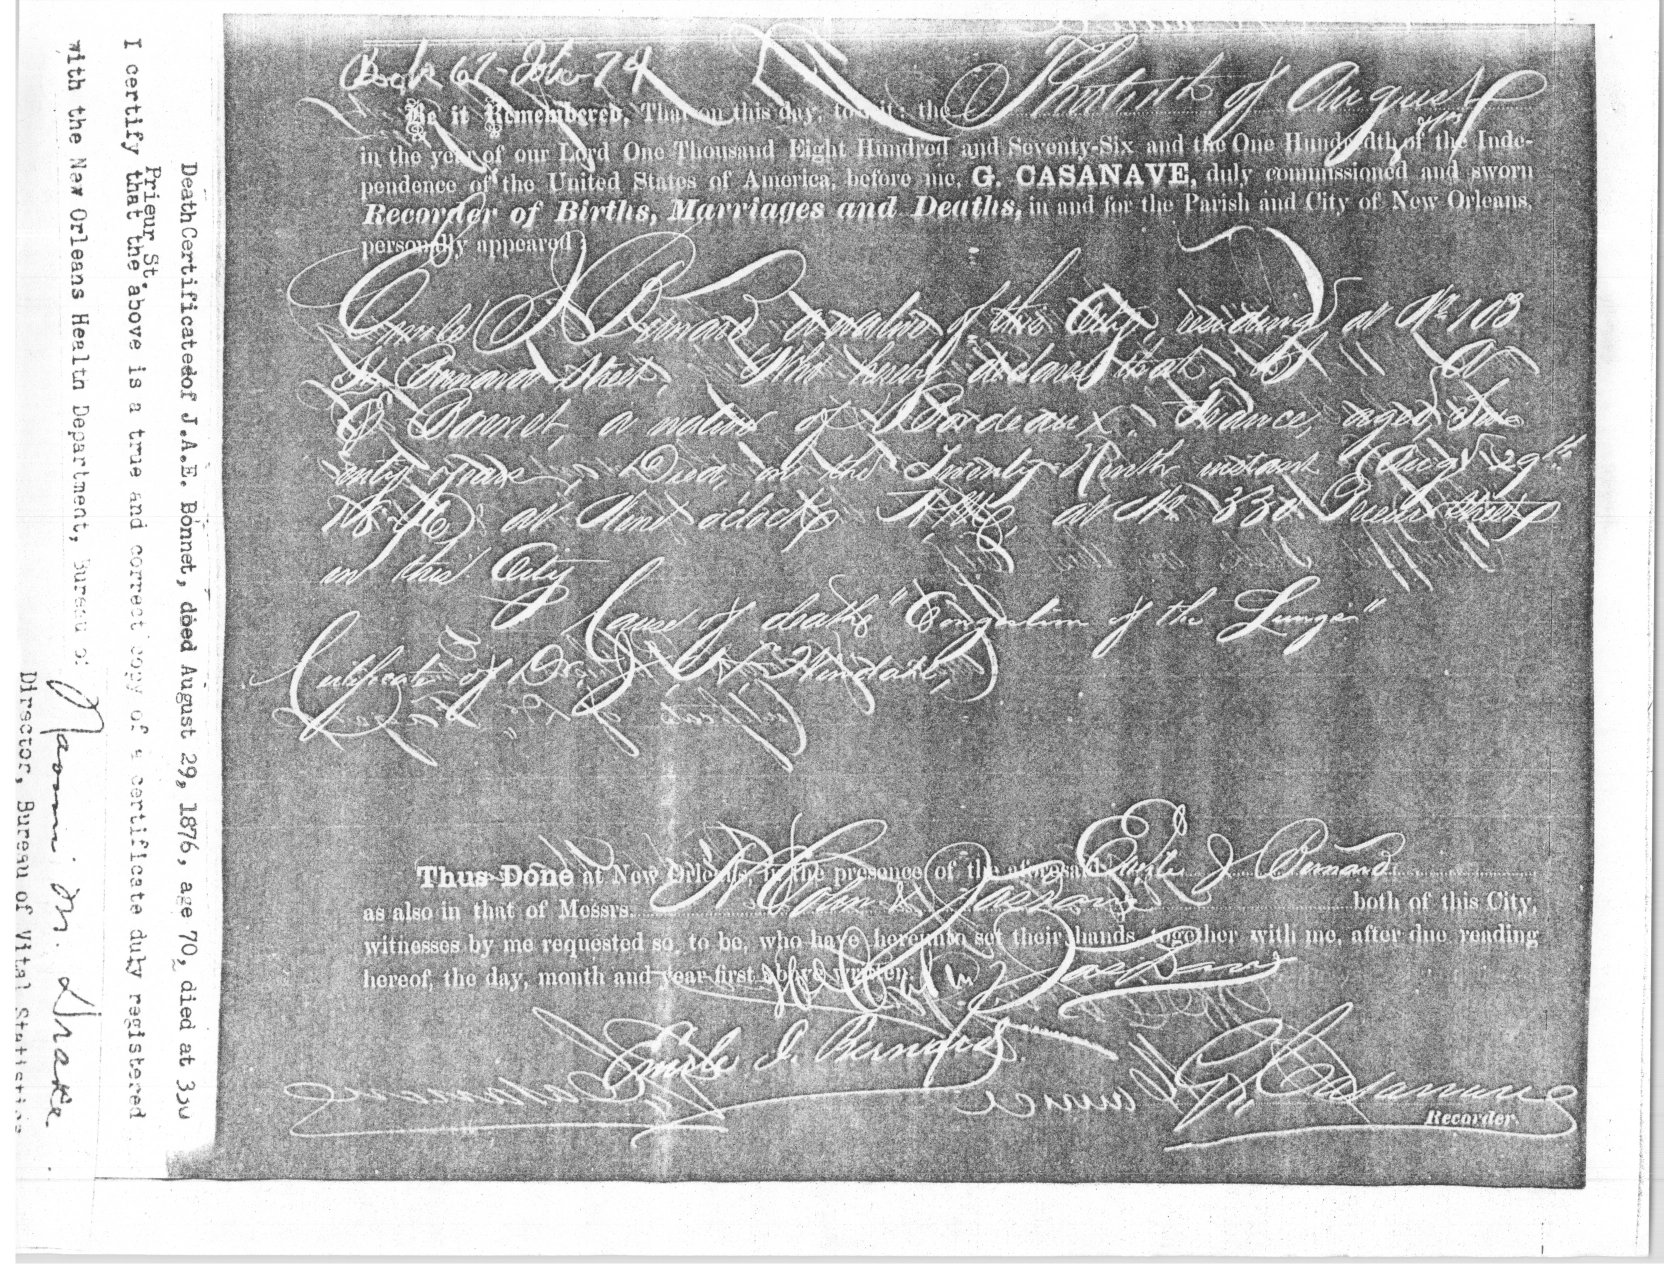 Book 67 - Folio 74
Thirtieth of August
Be it Remembered, That on this day, to wit: the
in the year of our Lord One Thousand Eight Hundred and Seventy-Six and the One Hundredth of the Inde-
pendence of the United States of America, before me, G. CASANAVE, duly commissioned and sworn
Recorder of Births, Marriages and Deaths, in and for the Parish and City of New Orleans,
personally appeared
Emile J. Bernard a native of this City, residing at No. 103
Street Who hereby declares that
Bonnet, a native of Bordeaux, France, aged Sev
enty years Died, on the Twenty Ninth instant (Aug. 29th
1876) at o'clock at No. 330 Prieur Street
in this City
Cause of death "Congestion of the Lungs"
Certificate of Dr.
Thus Done at New Orleans, in the presence of the aforesaid Emile J. Bernard
as also in that of Messrs. both of this City,
witnesses by me requested so, to be, who have hereunto set their hands, together with me, after due reading
hereof, the day, month and year first above written.
Emile J. Bernard
G. Casanave
Recorder.
Death Certificateof J.A.E. Bonnet, doed August 29, 1876, age 70, died at 330
Prieur St.
I certify that the above is a true and correct copy of a certificate duly registered
with the New Orleans Health Department, Bureau of
Naomi M. Drake
Director, Bureau of Vital Statistics